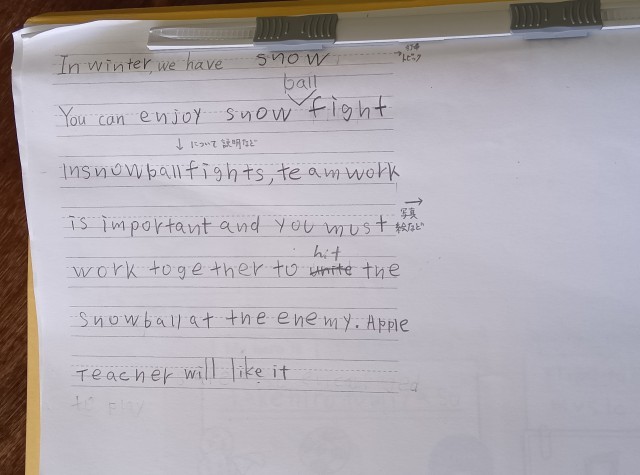 In winter, we have snow
ball
You can enjoy snow fight
↓ について説明など
In snowball fights, teamwork
is important and you must
写真
絵など
hit
work together to unite the
snowball at the enemy. Apple
Teacher will like it